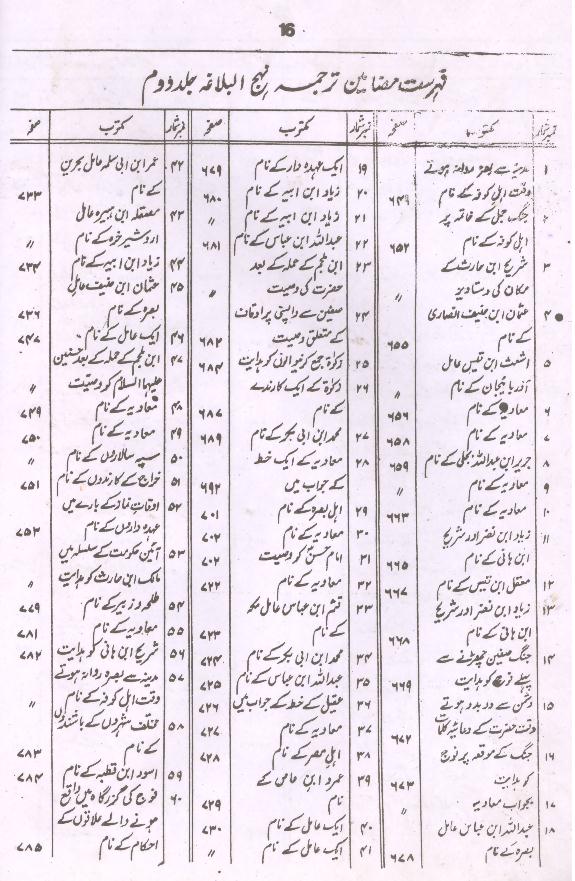 16
فہرست مضامین ترجمہ نہج البلاغہ جلد دوم
نمبر شمار مکتوب صفحہ
۱ مدینہ سے بصرہ روانہ ہوتے
وقت اہل کوفہ کے نام ۶۴۹
۲ جنگ جمل کے خاتمہ پر
اہل کوفہ کے نام ۶۵۲
۳ شریح ابن حارث کے
مکان کی دستاویز 〃
۴ عثمان ابن حنیف انصاری
کے نام ۶۵۵
۵ اشعث ابن قیس عامل
آذربائیجان کے نام 〃
۶ معاویہ کے نام ۶۵۶
۷ معاویہ کے نام ۶۵۸
۸ جریر ابن عبداللہ بجلی کے نام ۶۵۹
۹ معاویہ کے نام 〃
۱۰ معاویہ کے نام ۶۶۳
۱۱ زیاد ابن نضر اور شریح
ابن ہانی کے نام ۶۶۵
۱۲ معقل ابن قیس کے نام ۶۶۷
۱۳ زیاد ابن نضر اور شریح
ابن ہانی کے نام ۶۶۸
۱۴ جنگ صفین چھڑنے سے
پہلے فوج کو ہدایت ۶۶۹
۱۵ دشمن سے دوبدو ہوتے
وقت حضرت کے دعائیہ کلمات ۶۷۲
۱۶ جنگ کے موقعہ پر فوج
کو ہدایت ۶۷۳
۱۷ بجواب معاویہ 〃
۱۸ عبداللہ ابن عباس عامل
بصرہ کے نام ۶۷۸
نمبر شمار مکتوب صفحہ
۱۹ ایک عہدہ دار کے نام ۶۷۹
۲۰ زیاد ابن ابیہ کے نام ۶۸۰
۲۱ زیاد ابن ابیہ کے نام 〃
۲۲ عبداللہ ابن عباس کے نام ۶۸۱
۲۳ ابن ملجم کے حملہ کے بعد
حضرت کی وصیت 〃
۲۴ صفین سے واپسی پر اوقاف
کے متعلق وصیت ۶۸۲
۲۵ زکوٰۃ جمع کرنیوالوں کو ہدایت ۶۸۴
۲۶ زکوٰۃ کے ایک کارندے
کے نام ۶۸۷
۲۷ محمد ابن ابی بکر کے نام ۶۸۹
۲۸ معاویہ کے ایک خط
کے جواب میں ۶۹۲
۲۹ اہل بصرہ کے نام ۷۰۱
۳۰ معاویہ کے نام ۷۰۲
۳۱ امام حسنؑ کو وصیت ۷۰۲
۳۲ معاویہ کے نام ۷۲۲
۳۳ قثم ابن عباس عامل مکہ
کے نام ۷۲۳
۳۴ محمد ابن ابی بکر کے نام ۷۲۴
۳۵ عبداللہ ابن عباس کے نام ۷۲۵
۳۶ عقیل کے خط کے جواب میں ۷۲۶
۳۷ معاویہ کے نام ۷۲۷
۳۸ اہل مصر کے نام ۷۲۸
۳۹ عمرو ابن عاص کے
نام ۷۲۹
۴۰ ایک عامل کے نام ۷۳۰
۴۱ ایک عامل کے نام 〃
نمبر شمار مکتوب صفحہ
۴۲ عمر ابن ابی سلمہ عامل بحرین
کے نام ۷۳۳
۴۳ مصقلہ ابن ہبیرہ عامل
اردشیر خرہ کے نام 〃
۴۴ زیاد ابن ابیہ کے نام ۷۳۴
۴۵ عثمان ابن حنیف عامل
بصرہ کے نام ۷۳۶
۴۶ ایک عامل کے نام ۷۴۷
۴۷ ابن ملجم کے حملہ کے بعد حسنین
علیہما السلام کو وصیت 〃
۴۸ معاویہ کے نام ۷۴۹
۴۹ معاویہ کے نام ۷۵۰
۵۰ سپہ سالاروں کے نام 〃
۵۱ خراج کے کارندوں کے نام ۷۵۱
۵۲ اوقات نماز کے بارے میں
عہدہ داروں کے نام ۷۵۲
۵۳ آئین حکومت کے سلسلہ میں
مالک ابن حارث کو ہدایت 〃
۵۴ طلحہ و زبیر کے نام ۷۷۹
۵۵ معاویہ کے نام ۷۸۱
۵۶ شریح ابن ہانی کو ہدایت ۷۸۲
۵۷ مدینہ سے بصرہ روانہ ہوتے
وقت اہل کوفہ کے نام 〃
۵۸ مختلف شہروں کے باشندوں
کے نام ۷۸۳
۵۹ اسود ابن قطبہ کے نام ۷۸۴
۶۰ فوج کی گزرگاہ میں واقع
ہونے والے علاقوں کے
احکام کے نام ۷۸۵